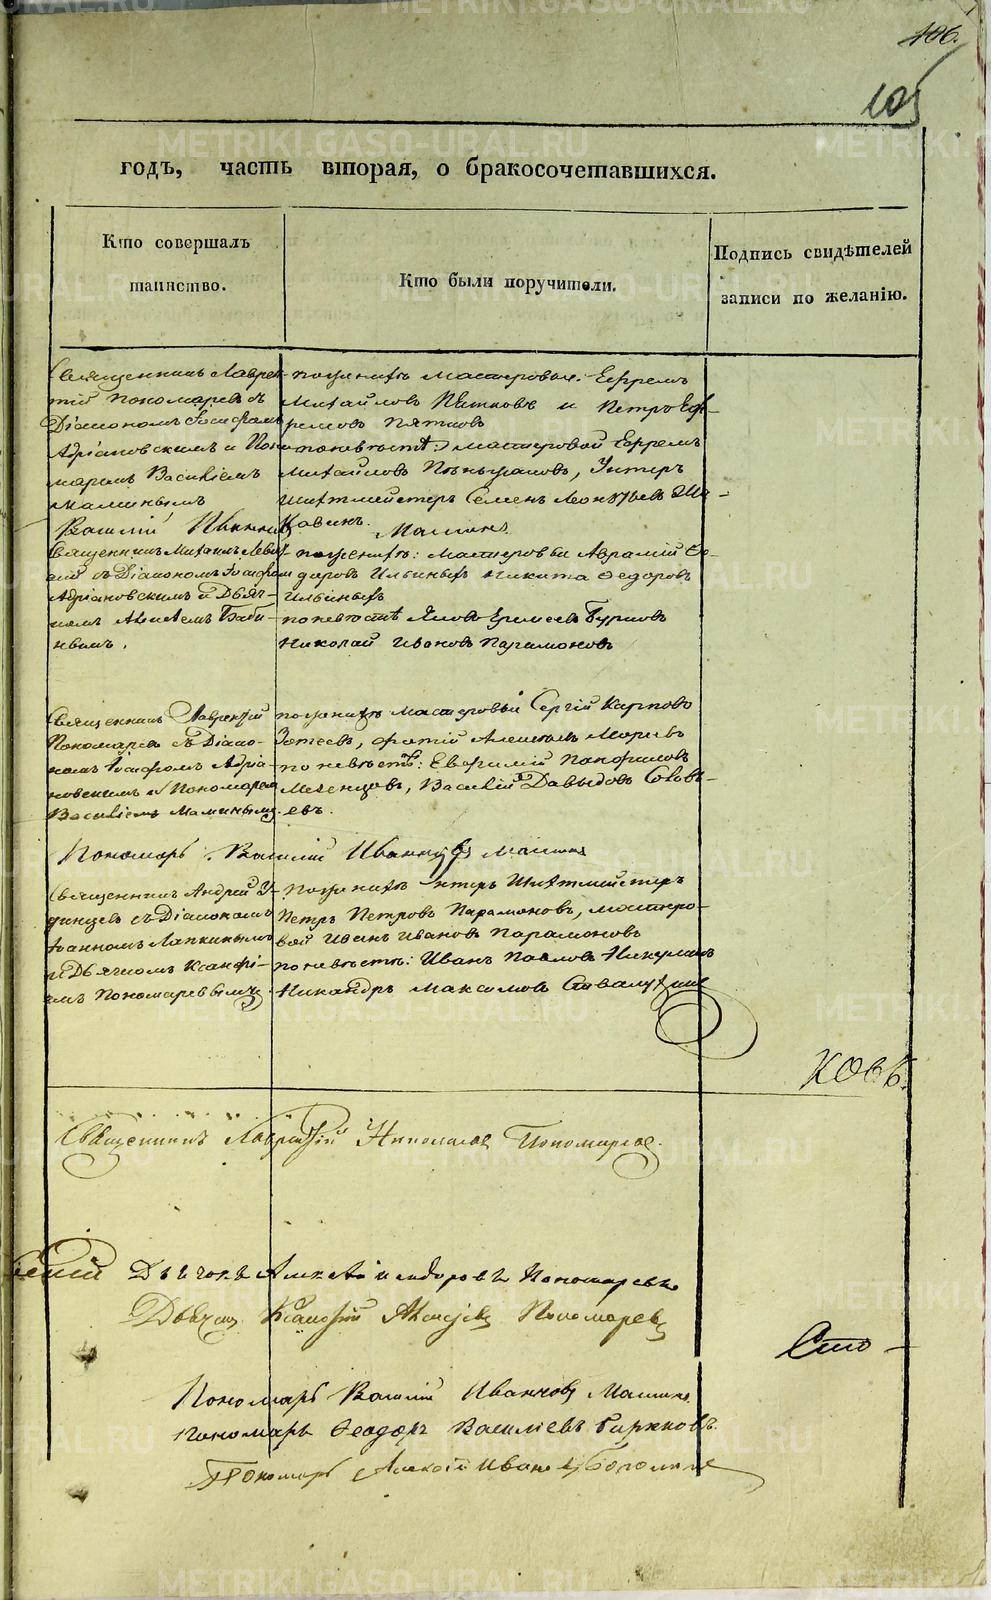 METRIKI.GASO-URAL.RU
106.
105
годъ, часть вторая, о бракосочетавшихся.
Кто совершалъ таинство.
Кто были поручители.
Подпись свидѣтелей записи по желанію.
Священникъ Лаврен-
тій Пономаревъ съ
Діакономъ Іосифомъ
Адріановскимъ и Поно-
маремъ Василіемъ
Маминымъ
по женихѣ мастеровые: Ефремъ
Михайловъ Пятковъ и Петръ Еф-
ремовъ Пятковъ
по невѣстѣ: мастеровой Ефремъ
Михайловъ, Унтеръ
Шихтмейстеръ Семенъ Леонтьевъ Ша-
кавинъ.
Василій Маминъ
Священникъ Михаилъ
съ Діакономъ Іосифом
Адріановскимъ и Дьяч-
комъ
по женихѣ: мастеровые Аврамій Ѳе-
доровъ Ильиныхъ Никита Ѳедоровъ
Ильиныхъ
по невѣстѣ Яковъ Еремеевъ Бурковъ
Николай Ивановъ Парамоновъ
Священникъ Лаврентій
Пономаревъ съ Діако-
номъ Іосифомъ Адріа-
новскимъ и Пономаремъ
Василіемъ Маминымъ
по женихѣ мастеровый Сергій Карповъ
Зотеевъ, Фотій
по невѣстѣ: Евфимій Панфиловъ
Василій Давыдовъ Соловь-
евъ.
Пономарь Василій Ивановъ Маминъ
Священникъ Андрей У-
динцевъ съ Діакономъ
Іоанномъ Лапкинымъ
и Дьячкомъ Ксанфі-
емъ Пономаревымъ
по женихѣ Унтеръ Шихтмейстеръ
Петръ Петровъ Парамоновъ, мастеро-
вой Иванъ Ивановъ Парамоновъ
по невѣстѣ: Иванъ Павловъ
Никандръ Максимовъ
ковъ.
Священникъ Лаврентій Николаевъ Пономаревъ.
Дьячокъ Алексѣй Пономаревъ
Дьячокъ Ксанфій Алексѣевъ Пономаревъ
Сто
Пономарь Василій Ивановъ Маминъ
Пономарь Ѳеодоръ Василіевъ
Пономарь Алексій Ивановъ